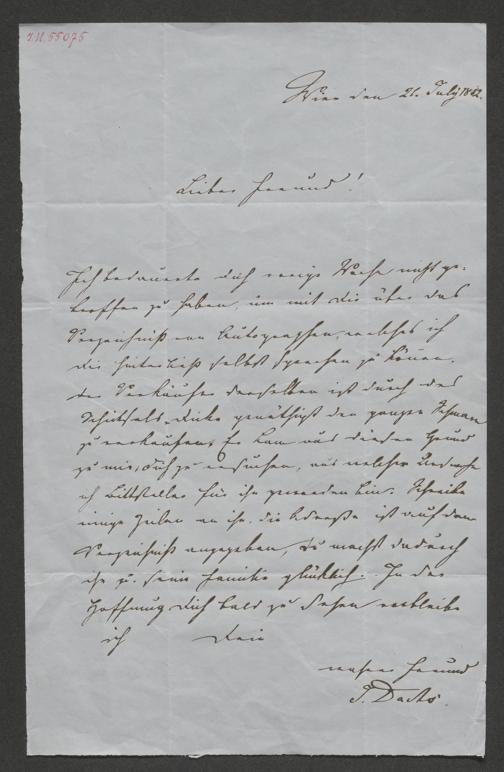 I.N. 55075
Wien den 21. July 18
Lieber Freund!
Ich bedauerte Dich vorige Woche nicht ge-
troffen zu haben, um mit Dir über das
Verzeichniß von Autographen, welches ich
Dir hinterließ selbst sprechen zu können.
Der Verkäufer derselben ist durch des
Schicksals Tücke genöthigt den ganzen
zu verkaufen. Er kam aus diesem Grund
zu mir, Dich zu ersuchen, aus welcher Ursache
ich Bittsteller für ihn geworden bin. Schreibe
einige Zeilen an ihn, die Adresse ist auf dem
Verzeichniß angegeben, Du machst dadurch
ihn u. seine Familie glücklich. In der
Hoffnung Dich bald zu sehen verbleibe
ich Dein
wahrer Freund